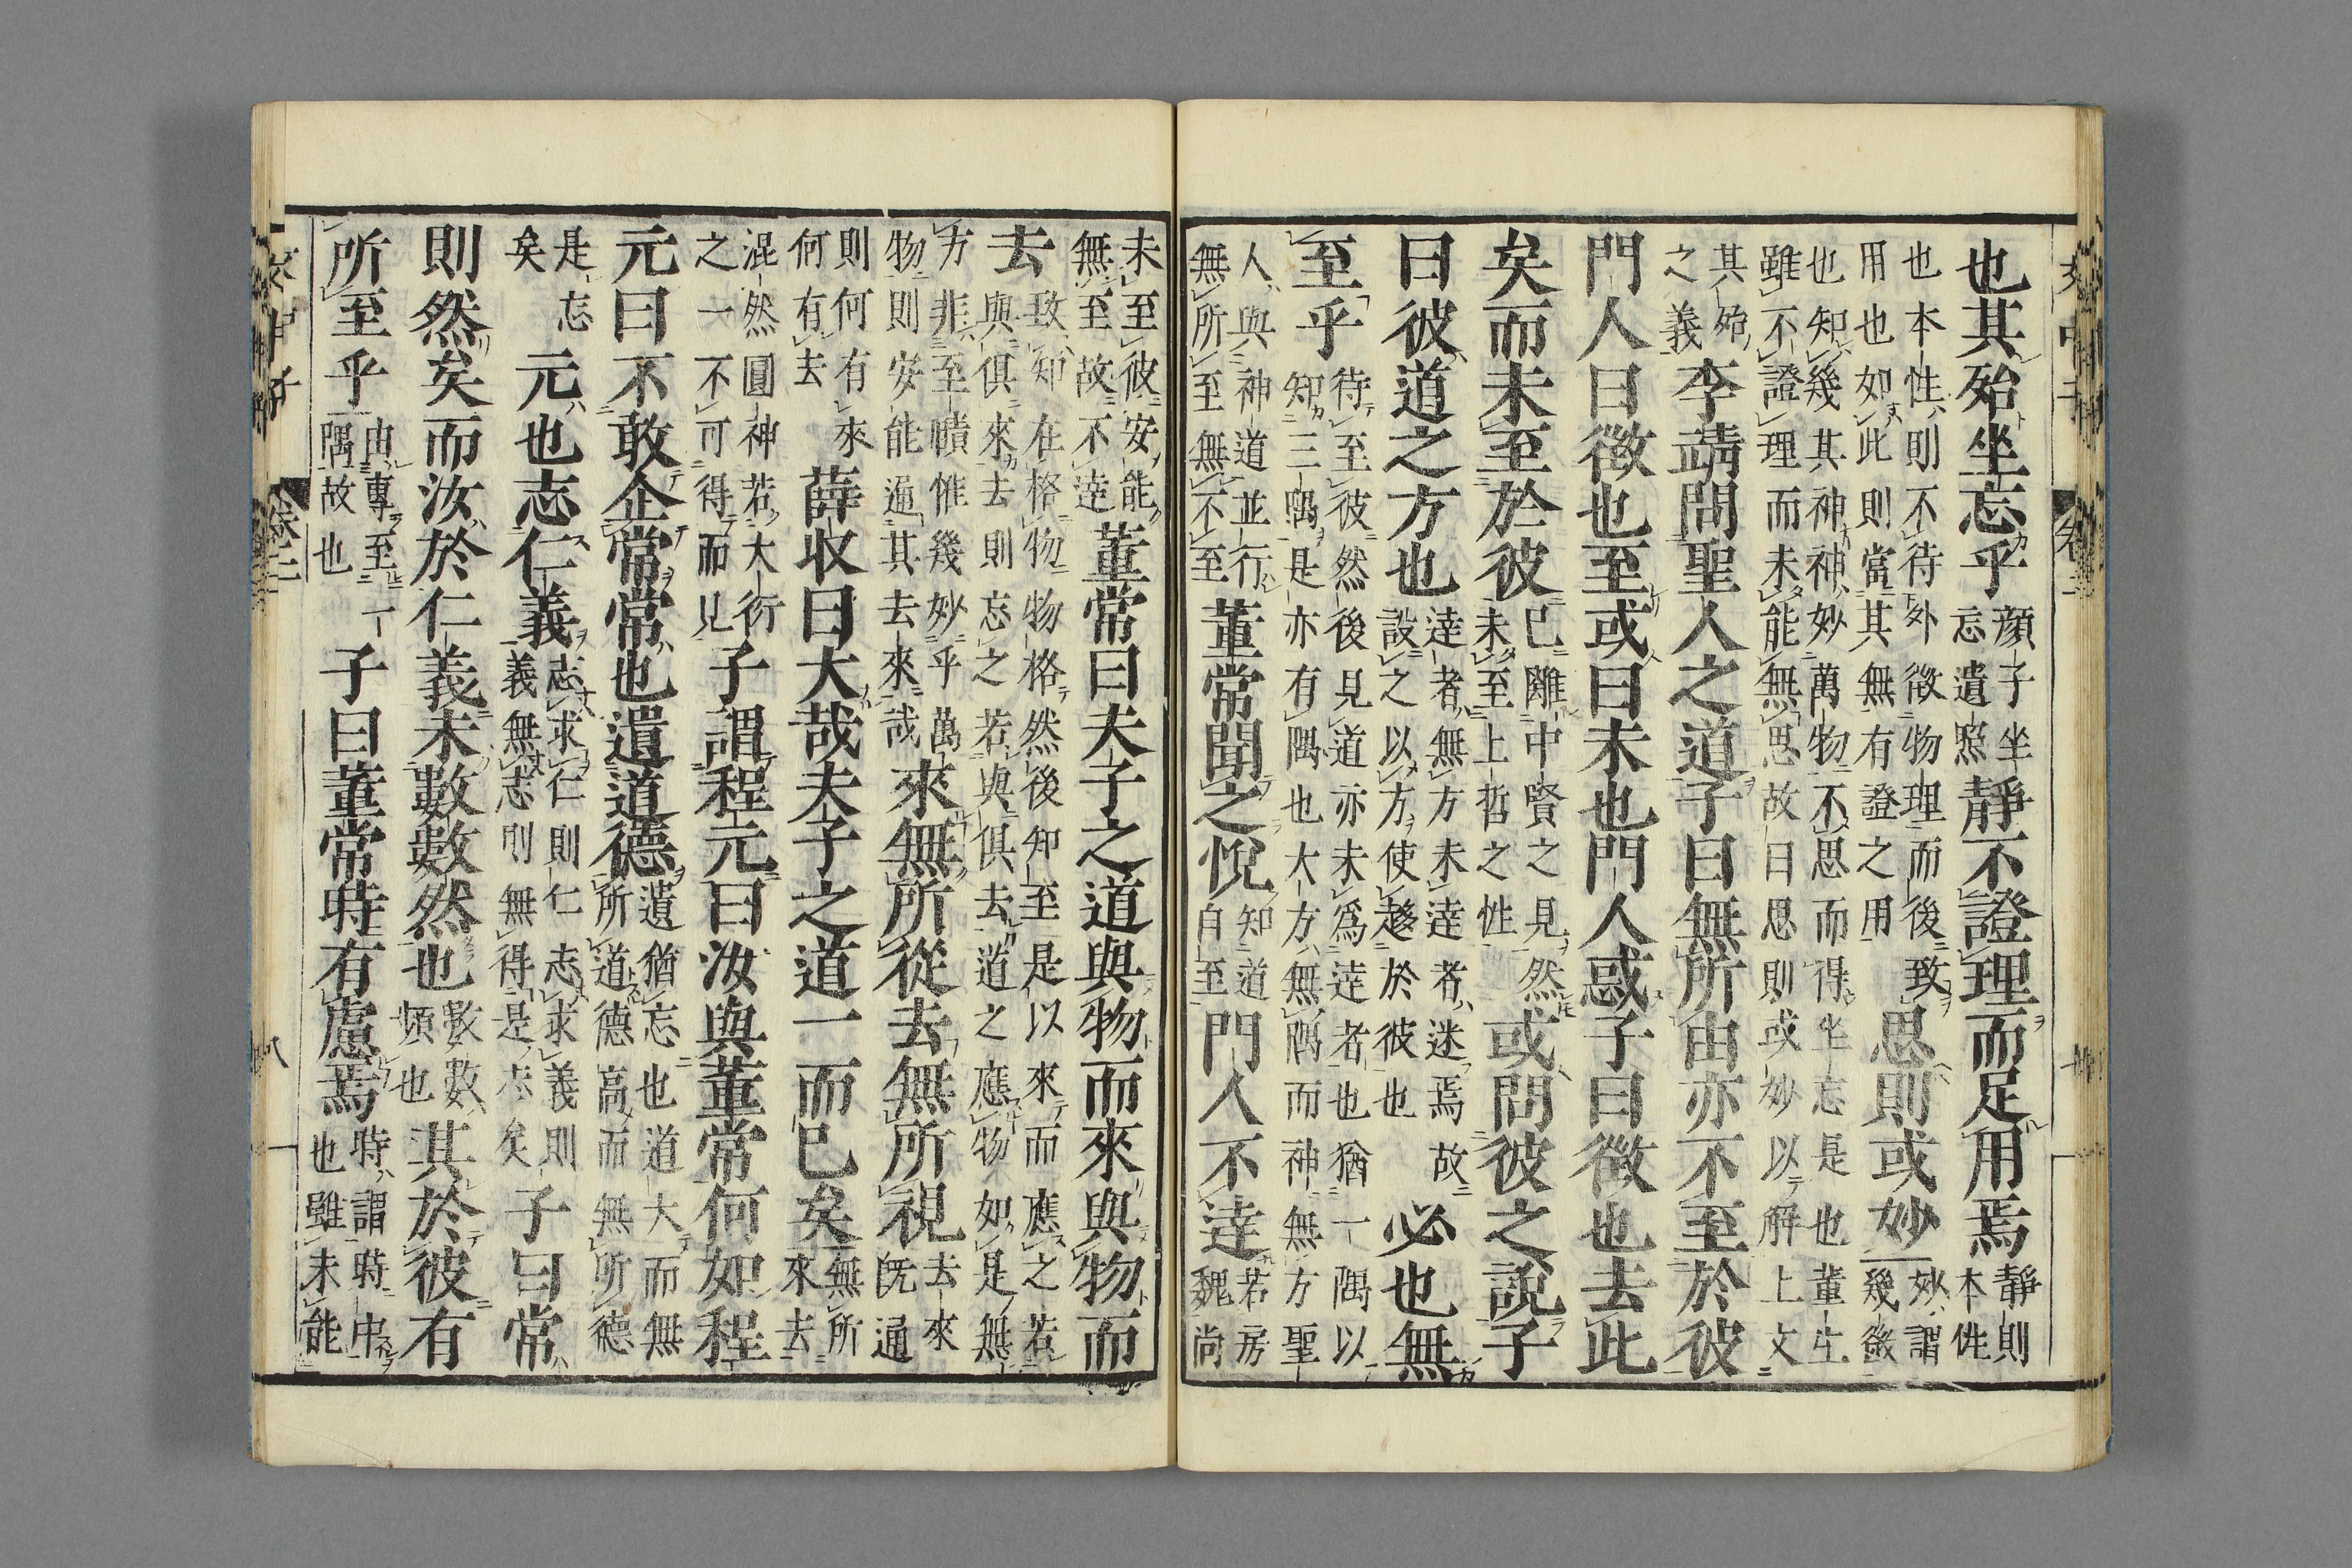 也其殆坐忘乎顔子坐忘遺照靜不證理而足用焉靜則本性
也本性則不待外徵物理而後致用也如此則當其無有證之用思則或妙妙謂幾微
也知幾其神神妙萬物不思而得坐忘是也董生雖不證理而未能無思故曰思則或妙以解上文
其殆之義李靖問聖人之道子曰無所由亦不至於彼
門人曰徵也至或曰未也門人惑子曰徵也去此
矣而未至於彼已離中賢之見然未至上哲之性或問彼之説子
曰彼道之方也達者無方未達者迷焉故設之以方使趍於彼也必也無
至乎待至彼然後見道亦未爲達者也猶一隅以知三隅是亦有隅也大方無隅而神無方聖
人與神道並行無所至無不至董常聞之悅知道自至門人不達若房魏尚
未至彼安能無至故不達董常曰夫子之道與物而來與物而
去致知在格物物格然後知至是以來而應之若與俱來去則忘之若與俱去道之應物如是無
方非至賾惟幾妙乎萬物則安能適其去來哉來無所從去無所視去來旣通
則何有來何有去薛收曰大哉夫子之道一而已矣無所來去
混然圓神若大衍之一不可得而見子謂程元曰汝與董常何如程
元曰不敢企常常也遺道德遺猶忘也道大而無所道德高而無所德
是忘矣元也志仁義志求仁則仁志求義則義無志則無得是志矣子曰常
則然矣而汝於仁義未數數然也數數頻也其於彼有
所至乎由專至一隅故也子曰董常時有慮焉時謂時中也雖未能
文中子
卷二
八